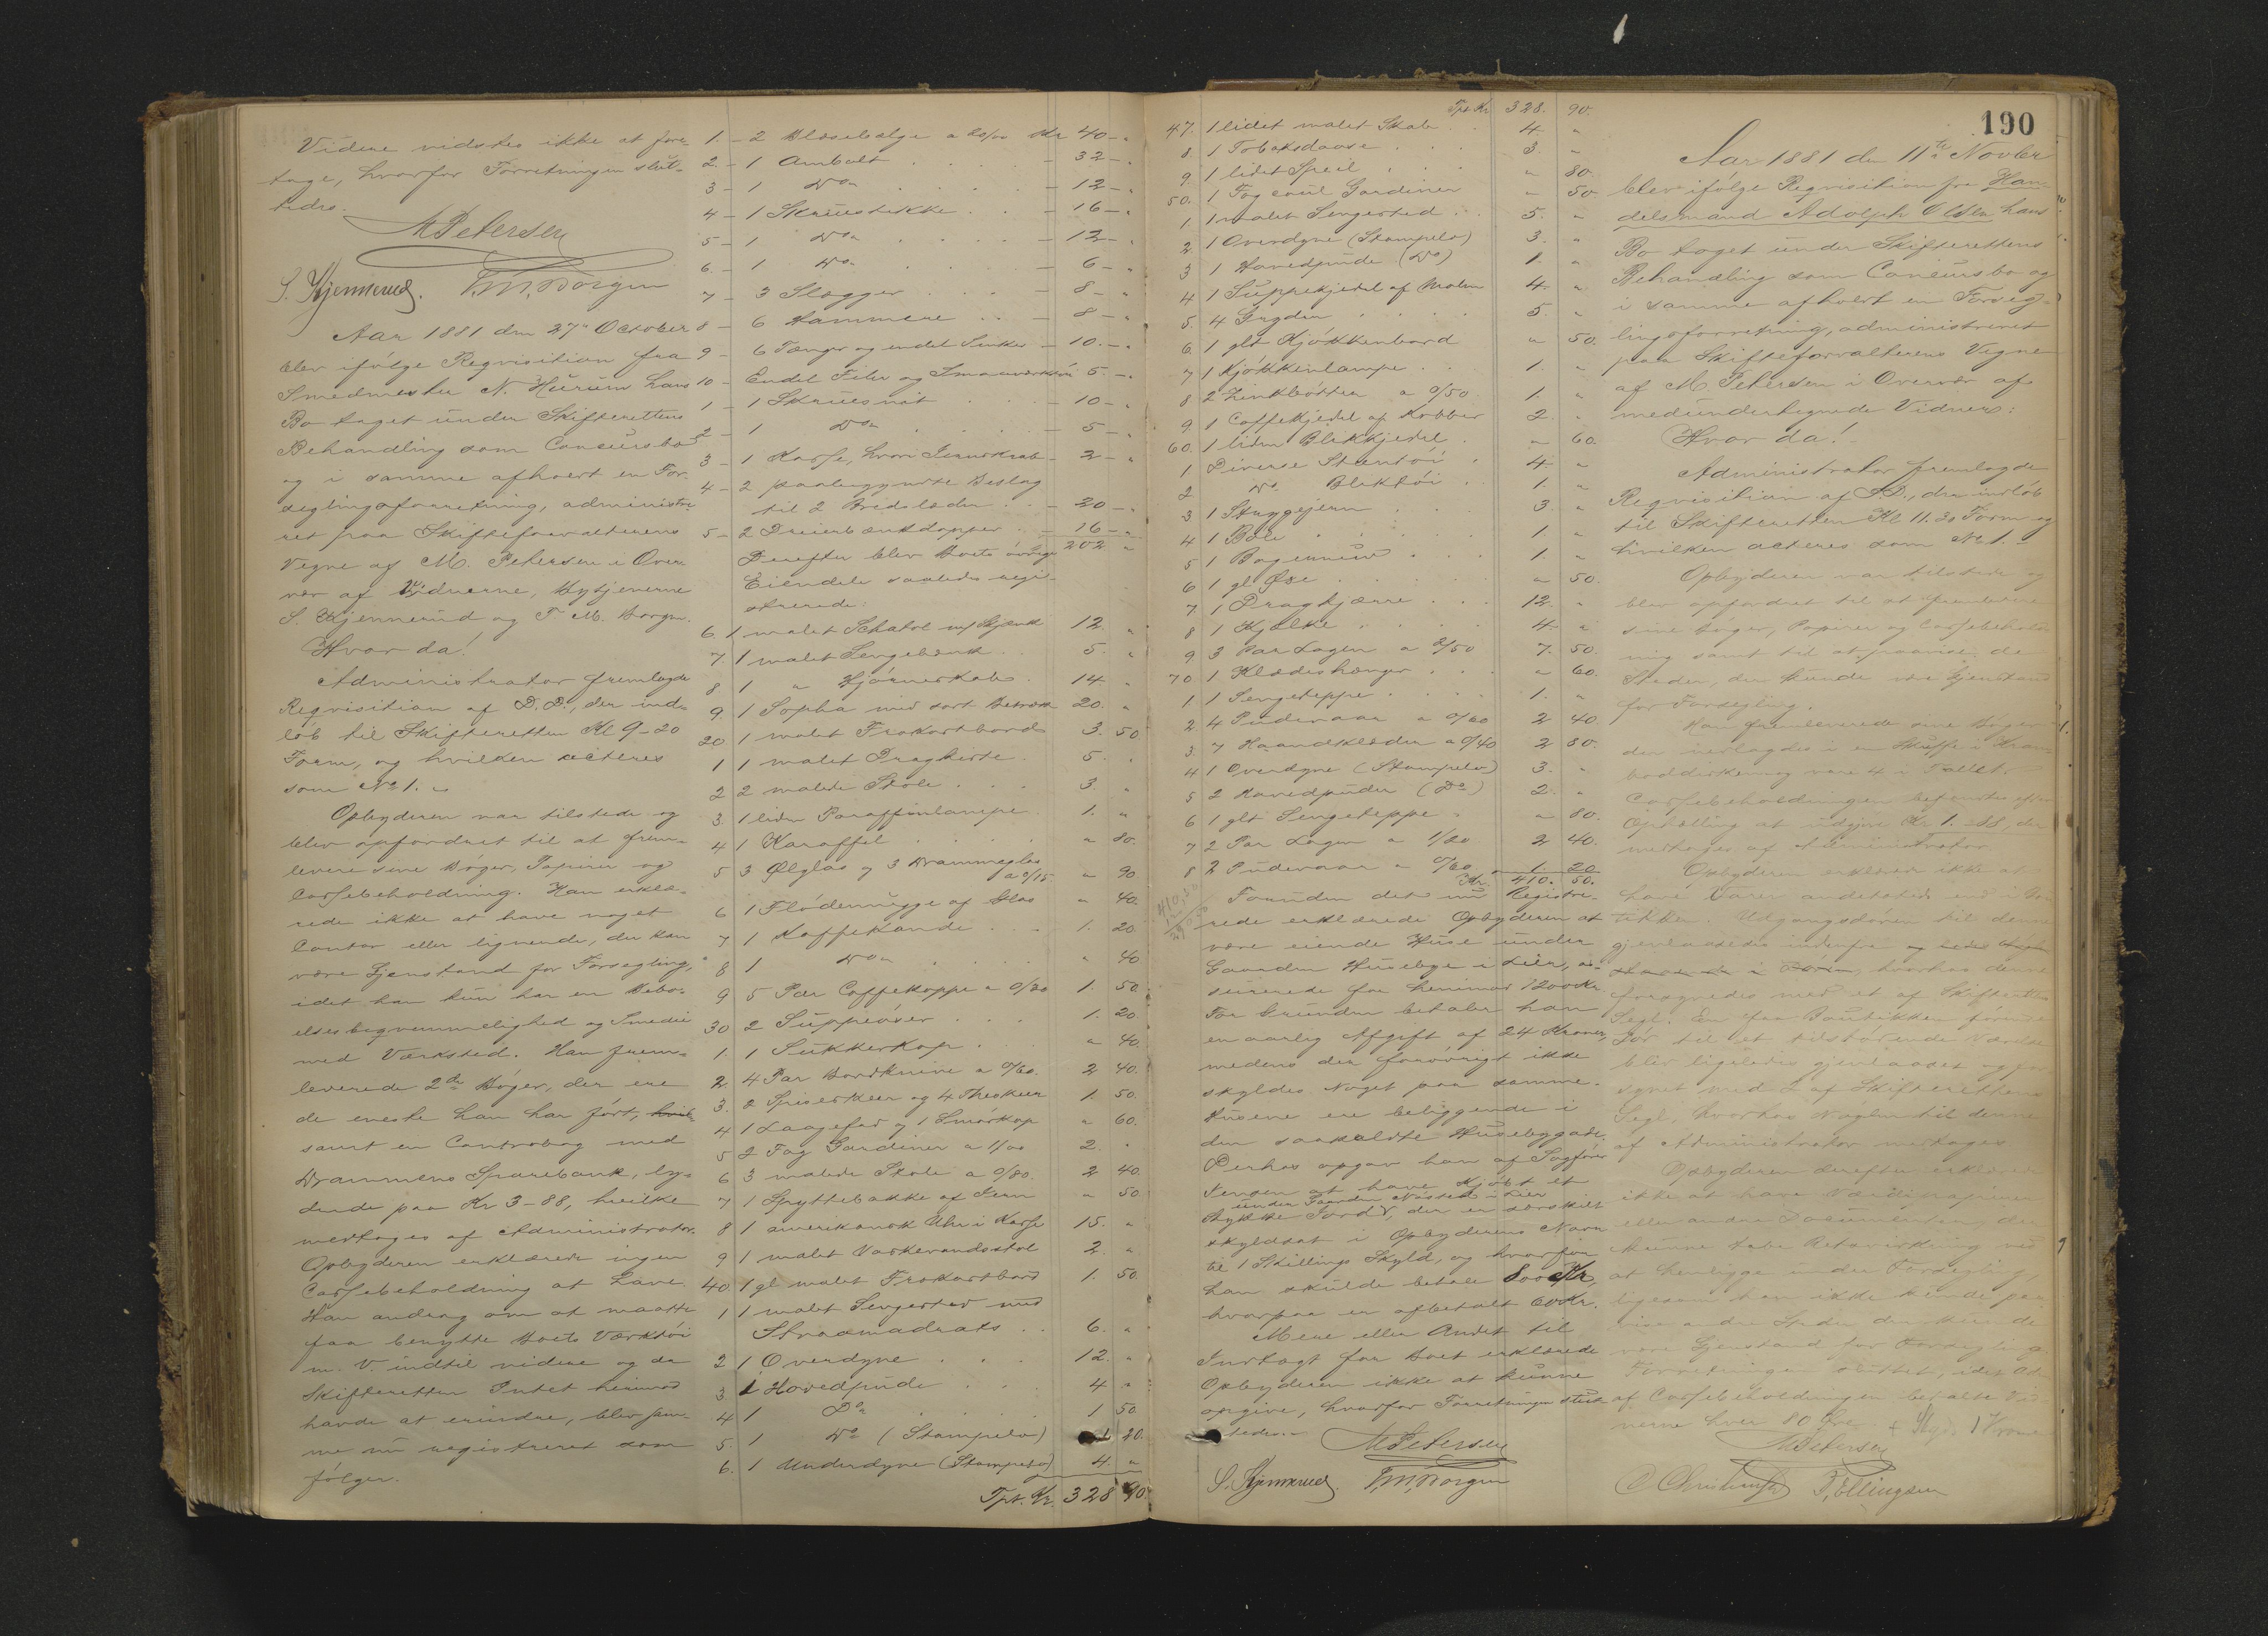 Videre vidstes ikke at fore-
tage, hvorfor Forretningen slut-
tedes.
M Petersen
S. Kjennerud. T. M. Borgen
Aar 1881 den 27de October
blev ifølge Reqvisition fra
Smedmester N. Hurum hans
Bo taget under Skifterettens
Behandling som Concursbo
og i samme afholdt en For-
seglingsforretning, administre-
ret paa Skifteforvalterens
Vegne af M. Petersen i Over-
vær af Vidnerne, Bytjenerne
S. Kjennerud og T. M. Borgen.
Hvor da!
Administrator fremlagde
Reqvisition af D. D., der ind-
løb til Skifteretten Kl 9-20
Form, og hvilken acteres
som No 1.
Opbyderen var tilstede og
blev opfordret til at frem-
levere sine Bøger, Papirer og
Cassebeholdning. Han erklæ-
rede ikke at have noget
Contor eller lignende, der kan
være Gjenstand for Forsegling,
idet han kun har en Bebo-
elsesbeqvemmelighed og Smedie
med Værksted. Han frem-
leverede 2de Bøger, der ere
de eneste han har ført,
samt en Contrabog med
Drammens Sparebank, ly-
dende paa Kr 3-88, hvilke
medtages af Administrator.
Opbyderen erklærede ingen
Cassebeholdning at have.
Han androg om at maatte
faa benytte Boets Værktøi
m. V. indtil videre og da
Skifteretten Intet herimod
havde at erindre, blev sam-
me nu registreret som
følger.
1. - 2 Blæsebælge a 20/00 Kr 40 - "
2. - 1 Ambolt - 32 - "
3 - 1 Do - 12 - "
4 - 1 Skruestikke - 16 - "
5 - 1 Do - 12 - "
6. - 1 Do - 6 - "
7 - 3 Slægger - 8 - "
8 - 6 Hammere - 8 - "
9 - 6 Tænger og endel Sinker - 10 - "
10 - Endel File og Smaaværktøi 5 - "
1 - 1 Skruesnit - 10 - "
2 - 1 Do - 5 - "
3 - 1 Kasse, hvori Jernskrab - 2 - "
4 - 2 paabegyndte Beslag
til 2 Bredslæder - 20 - "
5 - 2 Dreierbænkdopper - 16 - "
202 "
Derefter blev Boets øvrige
Eiendele saaledes regi-
strerede:
6. 1 malet Schatol 12. "
7. 1 malet Sengebænk 5. "
8 1 " Hjørneskab 14. "
9. 1 Sopha med sort Betræk 20. "
20. 1 malet Frokostbord 3. 50
1 1 malet Dragkiste 5. "
2 2 malede Stole 3. "
3. 1 liden Paraffinlampe 1. "
4 1 Karaffel " 80.
5 3 Ølglas og 3 Drammeglas
a 0/15 " 90
6 1 Flødemugge af Glas " 40.
7 1 Kaffekande 1. 20
8 1 Do " 40
9 5 Par Caffekopper a 0/30 1. 50
30 2 Suppeøser 1. 20
1. 1 Sukkerkop " 40.
2. 4 Par Bordknive a 0/60. 2 40.
3. 2 Spiseskeer og 4 Theskeer 1. 50.
4 1 Laagefad og 1 Smørkop " 60.
5 2 Fag Gardiner a 1/00 2. "
6 3 malede Stole a 0/80. 2 40.
7 1 Spyttebakke af Jern " 50
8 1 amerikansk Uhr i Kasse 15. "
9 1 malet Vaskevandsstol 2. "
40. 1 gl malet Frokostbord 1. 50.
1 1 malet Sengested med
Straamadrats 6. "
2 1 Overdyne 12. "
3 1 Hovedpude 4 "
4 1 Do 1 50
5. 1 Do (Stampelo) 1 20.
6. 1 Underdyne (Stampelo) 4. "
Tpt. Kr. 328 90.
Tpt Kr 328. 90.
47. 1 lidet malet Skab 4. "
8. 1 Tobaksdaase 3. "
9 1 lidet Speil " 80.
50. 1 Fag Gardiner " 50
1 1 malet Sengested 5. "
2 1 Overdyne (Stampelo) 3. "
3 1 Hovedpude (Do) 1. "
4 1 Suppekjedel af Malm 4. "
5. 4 Gryder 5. "
6. 1 glt Kjøkkenbord " 50.
7 1 Kjøkkenlampe 1. "
8 2 Zinkbøtter a 0/50 1. "
9 1 Caffekjedel af Kobber 2. "
60. 1 liden Blikkjedel " 60.
1 Diverse Stentøi 4. "
2 Do Bliktøi 1. "
3 1 Strygejern 3. "
4 1 Bøle 1. "
5 1 1. "
6 1 gl Øxe " 50.
7. 1 Dragkjærre 12. "
8 1 Kjælke 4. "
9. 3 Par Lagen a 2/50 7. 50.
70 1 Klædeshænger " 60.
1 1 Sengeteppe 1. "
2 4 Pudevaar a 0/60 2 40
3 7 Haandklæder a 0/40 2 80.
4 1 Overdyne (Stampelo) 3. "
5 2 Hovedpuder (Do) 2. "
6 1 glt Sengeteppe " 80.
7 2 Par Lagen a 1/20 2 40.
8 2 Pudevaar a 0/60 1. 20
Kr. 410. 50.
Foruden det nu Registre-
rede erklærede Opbyderen at
være eiende Huse under
Gaarden Huseby i Lier, as-
surerede for henimod 1200 Kr.
For Grunden betaler han
en aarlig Afgift af 24 Kroner,
medens der forøvrigt ikke
skyldes Noget paa samme.
Husene ere beliggende i
den saakaldte Husebygade.
Derhos opgav han af Sagfører
Jensen at have kjøbt et
under Gaarden Nøsted i Lier
Stykke Jord, der er særskilt
skyldsat i Opbyderens Navn
til 1 Skillings Skyld, og hvorfor
han skulde betale 800 Kr,
hvorpaa er afbetalt 60 Kr.
Mere eller Andet til
Indtægt for Boet erklærede
Opbyderen ikke at kunne
opgive, hvorfor Forretningen slut-
tedes.
M Petersen
S. Kjennerud. T. M. Borgen
190
Aar 1881 den 11te Novbr
blev ifølge Reqvisition fra Han-
delsmand Adolph Olsen hans
Bo taget under Skifterettens
Behandling som Concursbo og
i samme afholdt en Forseg-
lingsforretning, administreret
paa Skifteforvalterens Vegne
af M Petersen i Overvær af
medundertegnede Vidner:
Hvor da!
Administrator fremlagde
Reqvisition af D.D., der indløb
til Skifteretten Kl 11.30 Form og
hvilken acteres som No 1.
Opbyderen var tilstede og
blev opfordret til at fremlevere
sine Bøger, Papirer og Cassebehold-
ning samt til at paavise de
Steder, der kunde være Gjenstand
for Forsegling.
Han fremleverede sine Bøger
der nedlagdes i en Skuffe i Kram-
boddisken og vare 4 i Tallet.
Cassebeholdningen befandtes efter
Optælling at udgjøre Kr 1.88 der
medtages af Administrator
Opbyderen erklærede ikke at
have Varer andetsteds end i Bou-
tikken. Udgangsdøren til denne
gjenlaasedes indenfra og
hvorhos denne
forsegledes med et af Skifterettens
Segl. En fra Boutikken førende
Dør til et tilstødende Værelse
blev ligeledes gjenlaaset og for-
synet med 2 af Skifterettens
Segl, hvorhos Nøglen til denne
af Administrator medtages
Opbyderen derefter erklærede
ikke at have Værdipapirer
eller andre Documenter, der
at henligge under Forsegling,
ligesom han ikke kunde paa-
vise andre Steder, der kunde
være Gjenstand for Forsegling.
Forretningen sluttet, idet
af Cassebeholdningen betaltes Vid-
nerne hver 80 Øre. 1 Krone
M Petersen
O Christensen T. Ellingsen